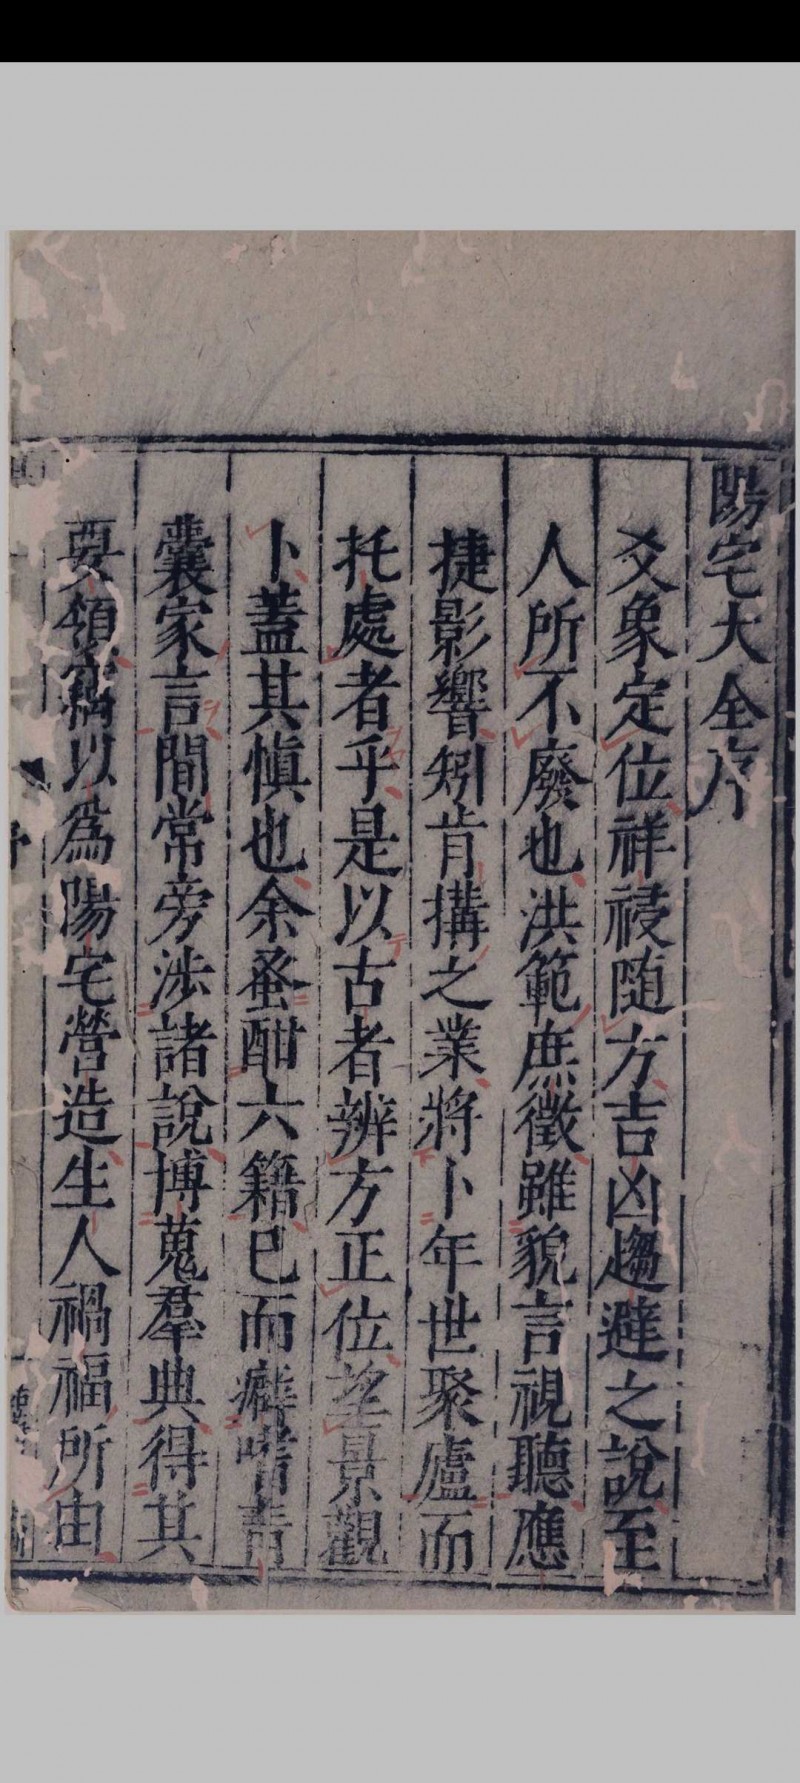 陽宅大全序
爻象定位祥祲随方吉凶趨避之說至
人所不廢也洪範庶徵雖貌言視聽應
捷影響矧肯搆之業將卜年世聚廬而
托處者乎是以古者辨方正位望景觀
卜蓋其愼也余蚤酣六籍已而癖嗜青
囊家言間常旁涉諸說博蒐羣典得其
要領竊以爲陽宅營造生人禍福所由